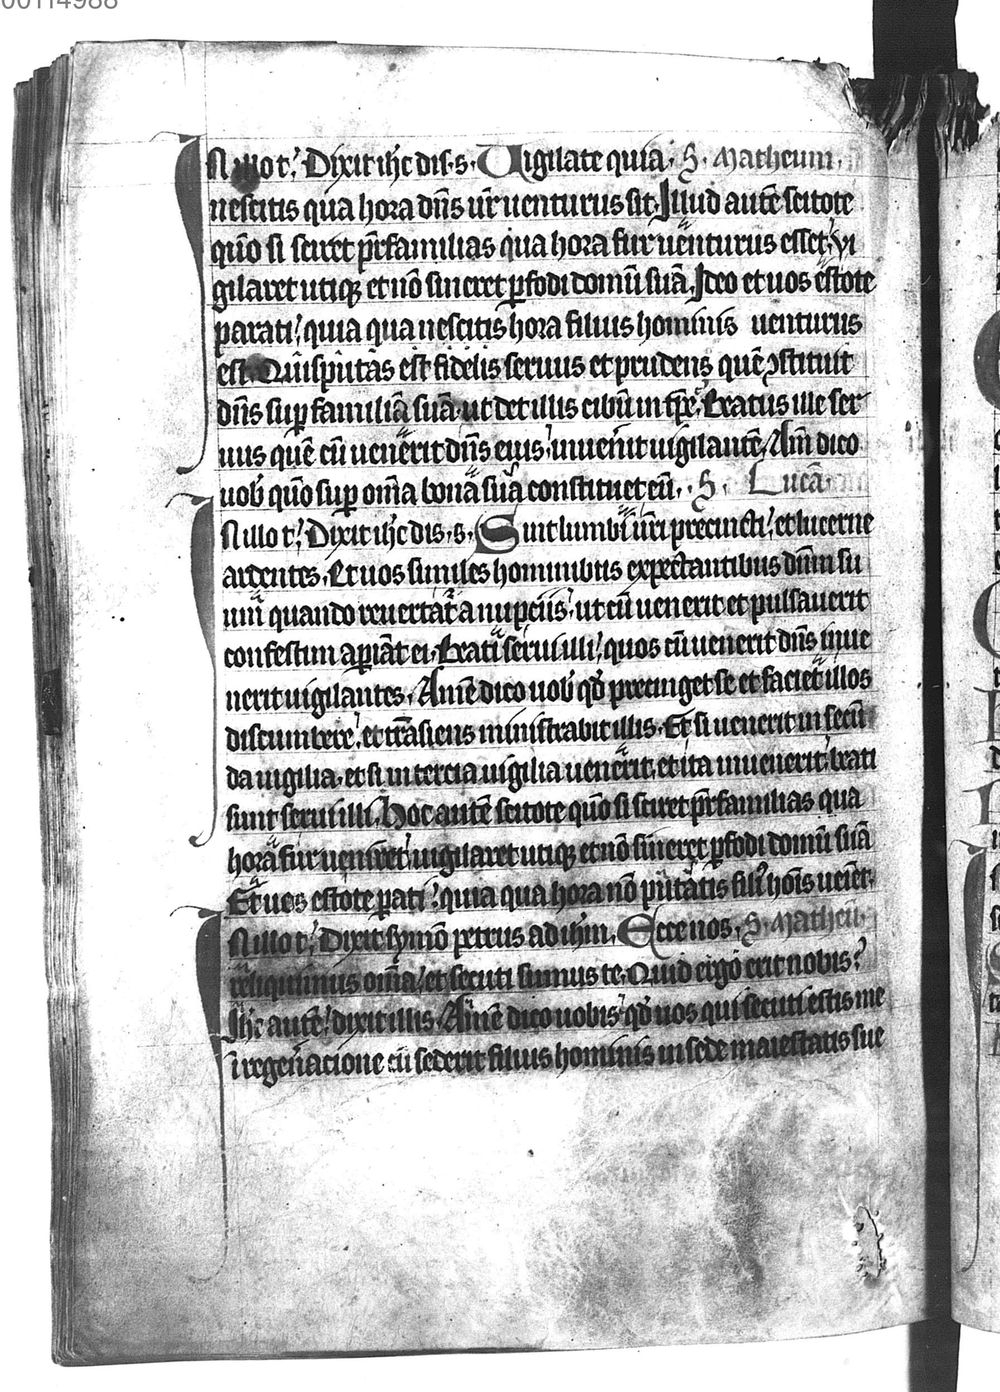 00114988
In illo t̄. Dixit ih̄c dis. s. Uigilate quia. S. Matheum.
nescitis qua hora dn̄s ur̄ uenturus sit. Illud autē scitote
quō si sciret pr̄familias qua hora fur uēnturus esset. vi
gilaret utiqꝫ et nō sineret ꝑfodi domū suā. Ideo et uos estote
parati. quia qua nescitis hora filius hominis uenturus
est. Quis putas est fidelis seruus et prudens quē ꝯstituit
dn̄s suꝑ familiā suā. ut det illis cibū in tp̄e. Beatus ille ser
uus quē cū uenerit dn̄s eius. inuen̄it uigilantē. Am̄ dico
uob̄ quō suꝑ om̄a bona sua constituet eū. S. Lucā.
In illo t̄. Dixit ih̄c dis. s. Sint lumbi ur̄i precincti. et lucerne
ardentes. Et uos similes hominibus expectantibus dn̄m su
um quando reuertat̄ a nupciis. ut cū uenerit et pulsauerit
confestim apiāt ei. Beati serui illi. quos cū uenerit dn̄s inue
nerit uigilantes. Amē dico uob̄ qd̄ precinget se et faciet illos
discumbere. et trāsiens ministrabit illis. Et si uenerit in secū
da uigilia. et si in tercia uigilia uenerit. et ita inuenerit. beati
sunt serui illi. Hoc autē scitote quō si sciret pr̄familias qua
hora fur ueniret. uigilaret utiqꝫ et nō sineret ꝑfodi domū suā
Et uos estote ꝑati. quia qua hora nō putatis fili⁹ hoīs ueiet.
In illo t̄. Dixit symō petrus ad ih̄m. Ecce nos. S. Matheū
reliquimus om̄a. et secuti sumus te. Quid ergo erit nobis?
Ih̄c autē. dixit illis. Amē dico uobis. qd̄ uos qui secuti estis me
ī regen̄acione cū sederit filius hominis in sede maiestatis sue